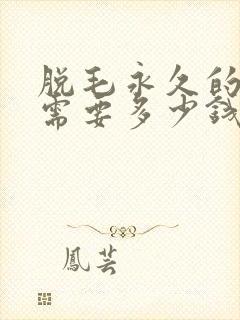 脱毛永久的
需要多少钱
鳳芸